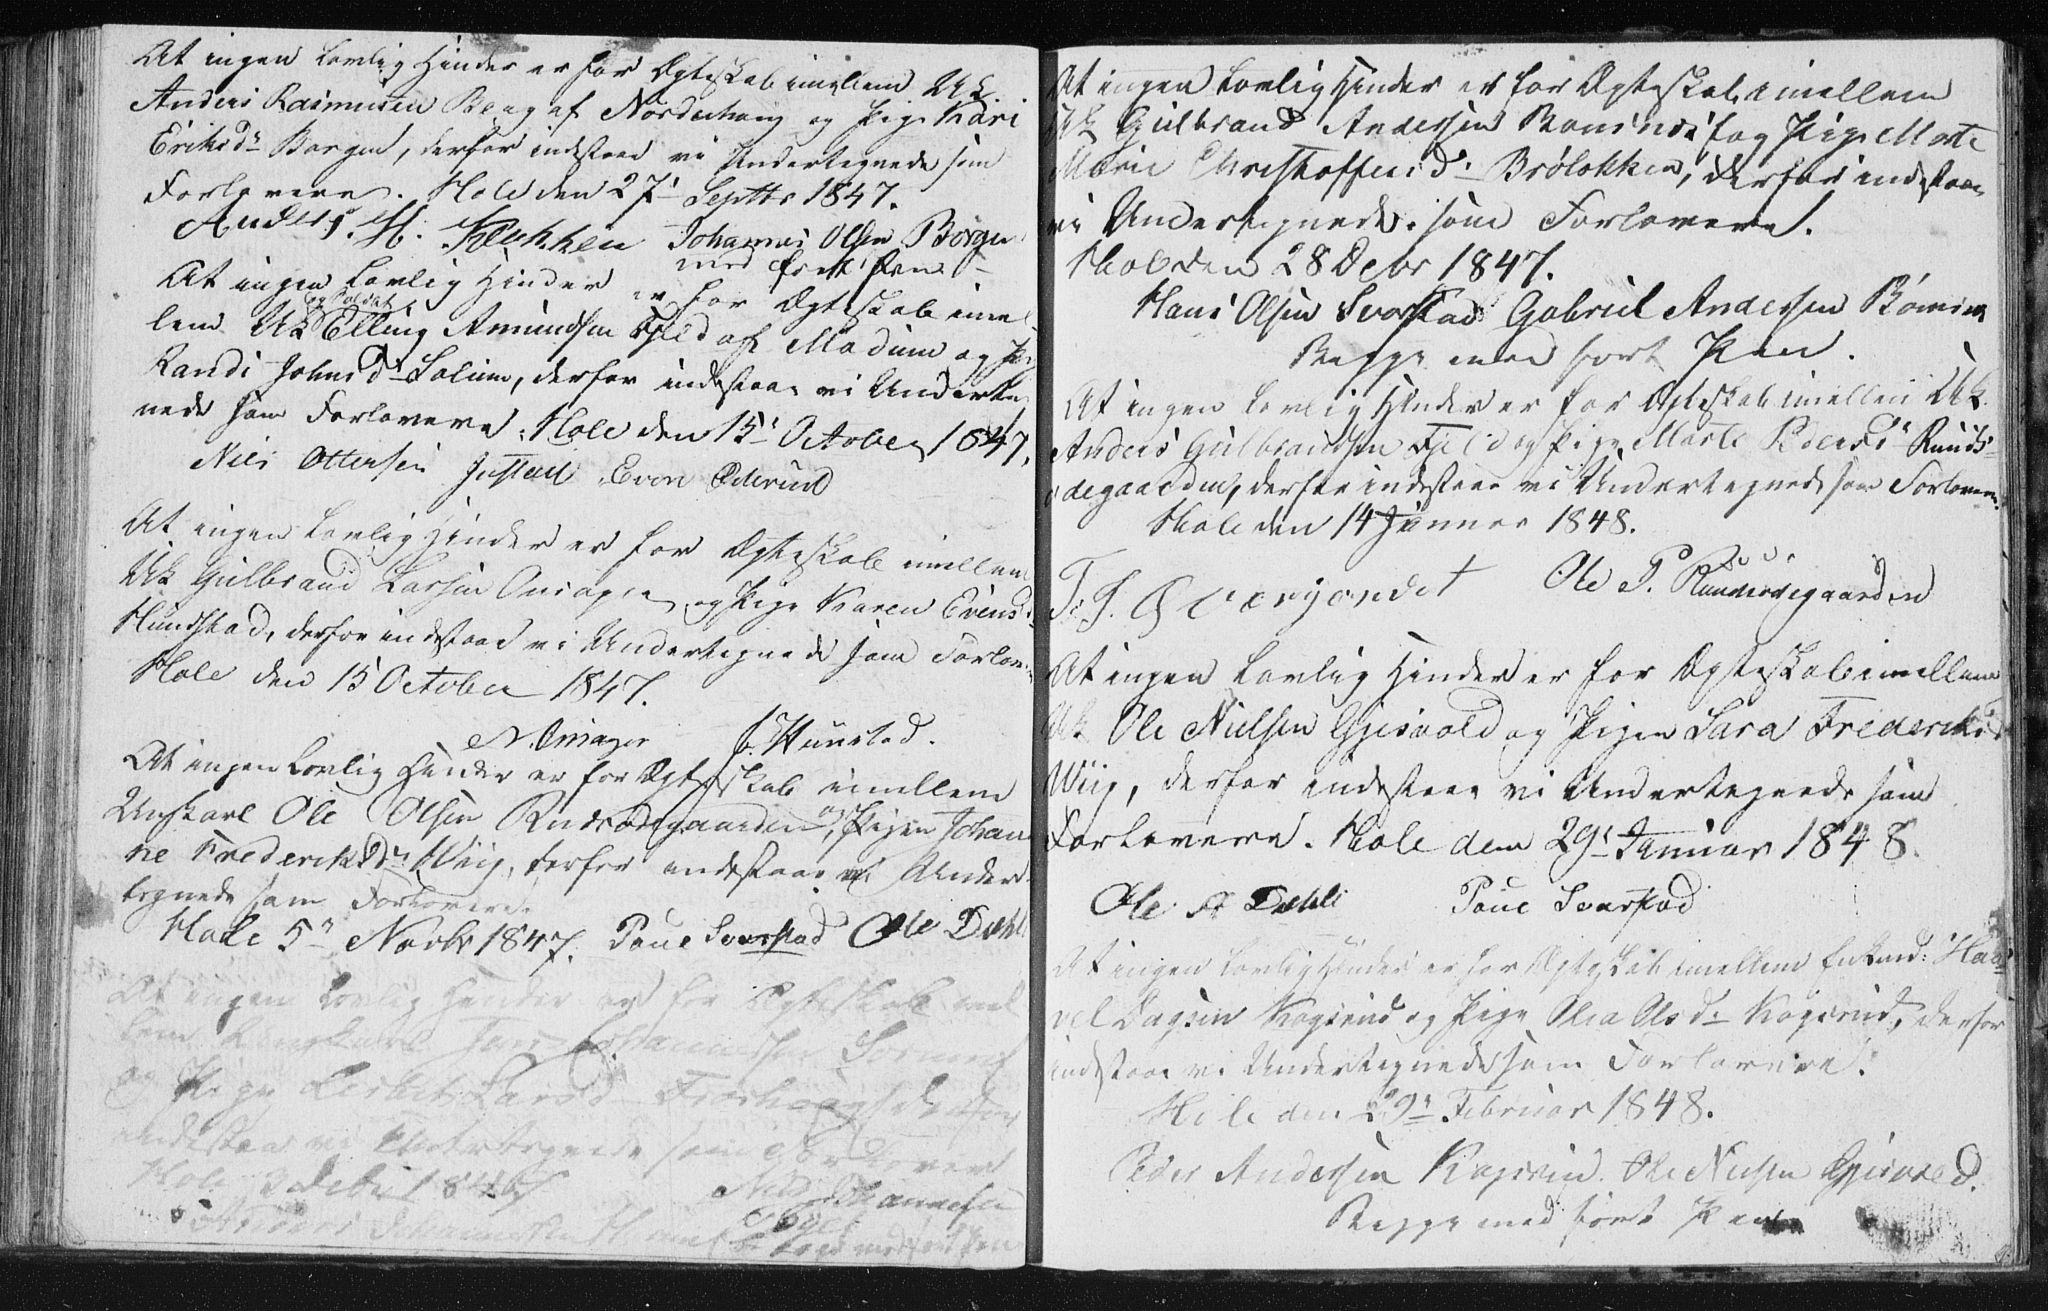 At ingen lovlig Hinder er for Ægteskab imellem Uk.
Anders Rasmusen Berg af Norderhoug og Pige Kari
Eriksdr Borgen, derfor indestaae vi Undertegnede som
Forlovere. Hole den 27de Septbr 1847.
Anders. H. Klekken Johannes Olsen Borgen
med ført Pen
At ingen lovlig Hinder er for Ægteskab imel-
og Soldat
lem Uk Elling Amundsen Fjeld af Modum og Pig
Randi Johnsdr Solum, derfor indestaae vi Underteg
nede som Forlovere. Hole den 15' October 1847.
Niels Ottersen Even Øderud
At ingen lovlig Hinder er for Ægteskab imellem
Uk Gulbrand Larsen Onsager og Pige Karen Evensdr
Hundstad, derfor indestaae vi Undertegnede som Forlov
Hole den 15 October 1847.
N. Onsager J. Hunstad.
At ingen lovlig Hinder er for Ægteskab imellem
Ungkarl Ole Olsen Rudsødegaarden, og Pigen Johan
ne Frederiksdr Wiig, derfor indestaae vi Under
tegnede som Forlovere.
Hole 5te Novbr 1847. Poul Svarstad Ole Dæhli
At ingen lovlig Hinder er for Ægteskab imel
lem Ungkarl Johannessen
og Pige Lisbet Larsd derfor
indestaae vi Undertegnede som Forlovere
Hole 3 Debr 1847 Nils Johannesen
Anders Johannesen med ført Pen
At ingen lovlig Hinder er for Ægteskab imellem
Uk Gulbrand Andersen og Pige Marte
Marie Christhoffersd: Brølokken, derfor indestaae
vi Undertegnede som Forlovere.
Hole den 28 Debr 1847.
Hans Olsen Svarstad Gabriel Andersen
Begge med ført Pen.
At ingen lovlig Hinder er for Ægteskab imellem Uk.
Anders Gulbrandsen Fjeld og Pige Marte Pedersdr Ruuds-
ødegaarden, derfor indestaae vi Undertegnede som Forlovere.
Hole den 14 Januar 1848.
Ole P. Ruudsødegaarden
At ingen lovlig Hinder er for Ægteskab imellem
Uk Ole Nielsen Gjesvold og Pigen Sara Frederiksd
Wiig, derfor indestaae vi Undertegnede som
Forlovere. Hole den 29de Januar 1848.
Ole A Dæhli Poul Svarstad
At ingen lovlig Hinder er for Ægteskab imellem Enkmd: Haa
vel Dagsen Kogsrud og Pige Olea Olsdr Kogsrud, derfor
indestaae vi Undertegnede som Forlovere.
Hole den 29de Februar 1848.
Peder Andersen Kogsrud. Ole Nielsen Gjesvold.
Begge med ført Pen